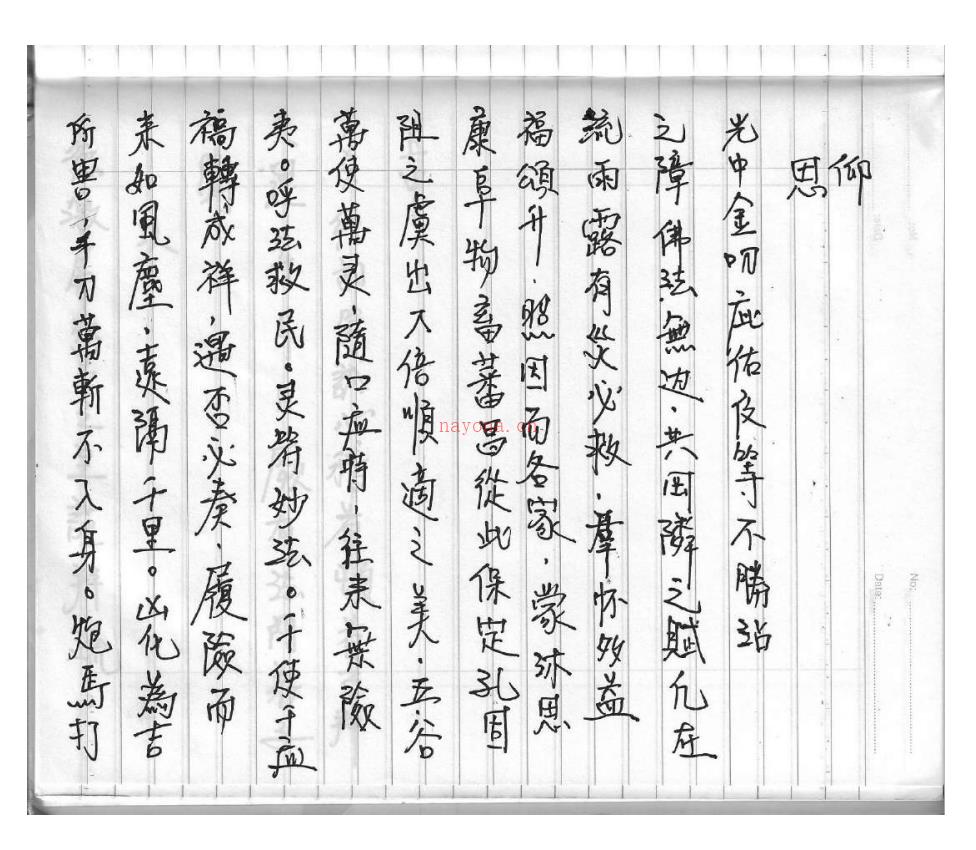 仰
恩
光中金叨庇佑良等不勝沾
之障佛法無边．共囬隣之賦凢在
統雨露有災必救．羣怀妙益
福頌升．照因而各家．蒙沐恩
康阜物畜蕃昌從此保定孔固
阻之虞出入倍順適之美．五谷
萬使萬灵．隨口血時．往来無險
夷。呼法救民。灵符妙法。千使千血
禍轉成祥．遇否必奏．履險而
来如風塵．遠隔千里。凶化為吉
所害．千刀萬斬不入身。炮馬打
nayona.cn
No:
Date: